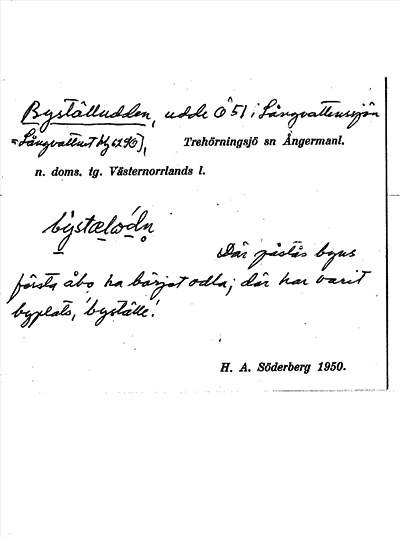 Byställudden, udde Ö 51 i Långvattensjön
= Långvattnet bg 6290],
Trehörningsjö sn Ångermanl.
n. doms. tg. Västernorrlands l.
bystælɷ́dn̥
Där påstås byns
första åbo ha börjat odla; där har varit
byplats, 'byställe'.
H. A. Söderberg 1950.